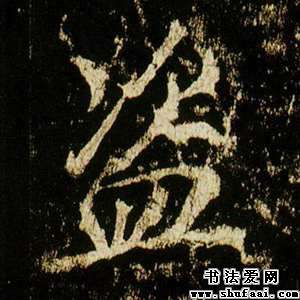 盗
书法爱网
www.shufaai.com